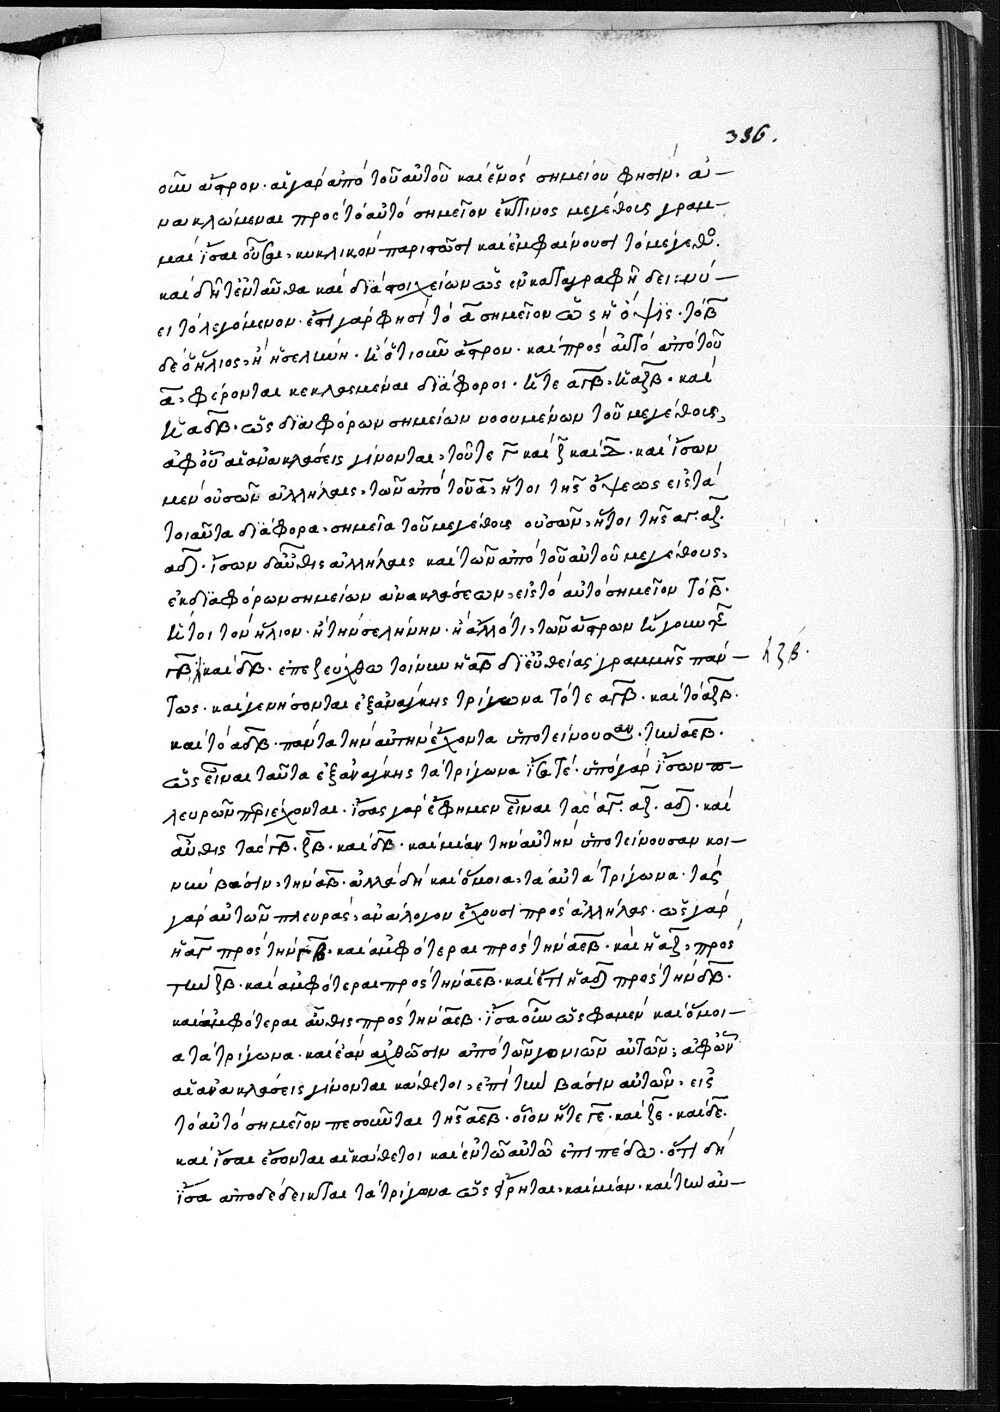 336.
οὖν ἄστρον. αἱ γὰρ ἀπὸ τοῦ αὐτοῦ καὶ ἑνὸς σημείου φησὶν. ἀ-
νακλώμεναι πρὸς τὸ αὐτὸ σημεῖον ἔκ τινος μεγέθους γραμ-
μαὶ ἴσαι οὖσαι, κυκλικὸν παριστῶσι καὶ ἐμφαίνουσι τὸ μέγεθο.
καὶ δὴ τἐνταῦθα καὶ διὰ στοιχείων ὡς ἐν καταγραφῇ δεικνύ-
ει τὸ λεγόμενον. ἔστι γάρ φησι τὸ α σημεῖον ὡς ἡ ὄψις. τὸ β
δὲ ὁ ἥλιος, ἢ ἡ σελήνη. ἢ ὅτι οὖν ἄστρον. καὶ πρὸς αὐτὸ ἀπὸ τοῦ
α, φέρονται κεκλασμέναι διάφοροι. ἥ τε αγβ, ἡ αζβ. καὶ
ἡ αδβ. ὡς διαφόρων σημείων νοουμένων τοῦ μεγέθους,
ἀφ οὗ αἱ ἀνακλάσεις γίνονται, τοῦ τε γ καὶ ζ καὶ δ. καὶ ἴσων
μὲν οὐσῶν ἀλλήλαις, τῶν ἀπὸ τοῦ α, ἤτοι τῆς ὄψεως εἰς τὰ
τοιαῦτα διάφορα, σημεῖα τοῦ μεγέθους οὐσῶν, ἤτοι τῆς αγ. αζ.
αδ. ἴσων δαὖθις ἀλλήλαις καὶ τῶν ἀπὸ τοῦ αὐτοῦ μεγέθους,
ἐκ διαφόρων σημείων ἀνακλάσεων, εἰς τὸ αὐτὸ σημεῖον τὸ β.
ἤτοι τὸν ἥλιον. ἢ τὴν σελήνην. ἢ ἄλλό τι, τῶν ἄστρων ἤγουν τῆς
γβ, καὶ δβ. ἐπεζεύχθω τοίνυν ἡ αβ δι εὐθείας γραμμῆς πάν-
κ ζβ.
τως. καὶ γενήσονται ἐξ ἀνάγκης τρίγωνα τό τε αγβ. καὶ τὸ αζβ.
καὶ τὸ αδβ. πάντα τὴν αὐτὴν ἔχοντα ὑποτείνουσαν, τὴν αεβ.
ὡς εἶναι ταῦτα ἐξ ἀνάγκης τὰ τρίγωνα ἴσά τέ. ὑπὸ γὰρ ἴσων π-
λευρῶν περιέχονται. ἴσας γὰρ ἔφημεν εἶναι τὰς αγ. αζ. αδ. καὶ
αὖθις τὰς γβ. ζβ. καὶ δβ. καὶ μίαν τὴν αὐτὴν ὑποτείνουσαν κοι-
νὴν βάσιν, τὴν αβ. ἀλλὰ δὴ καὶ ὅμοια, τὰ αὐτὰ τρίγωνα. τὰς
γὰρ αὐτῶν πλευρὰς, ἀνάλογον ἔχουσι πρὸς ἀλλήλας. ὡς γὰρ
ἡ αγ πρὸς τὴν γβ, καὶ ἀμφότεραι πρὸς τὴν αεβ. καὶ ἡ αζ, πρὸς
τὴν ζβ. καὶ ἀμφότεραι πρὸς τὴν αεβ. καὶ ἔτι ἡ αδ πρὸς τὴν δβ.
καὶ ἀμφότεραι αὖθις πρὸς τὴν αεβ. ἴσα οὖν ὡς φαμὲν καὶ ὅμοι-
α τὰ τρίγωνα. καὶ ἐὰν ἀχθῶσιν ἀπὸ τῶν γωνιῶν αὐτῶν, ἀφ ὧν
αἱ ἀνακλάσεις γίνονται κάθετοι, ἐπὶ τὴν βάσιν αὐτῶν, εἰς
τὸ αὐτὸ σημεῖον πεσοῦνται τῆς αεβ. οἷον ἥ τε γε. καὶ ζε. καὶ δε.
καὶ ἴσαι ἔσονται αἱ κάθετοι καὶ ἐν τῷ αὐτῷ ἐπιπέδῳ. ὅτι δὴ
ἴσα ἀποδέδεικται τὰ τρίγωνα ὡς εἴρηται, καὶ μίαν. καὶ τὴν αὐ-